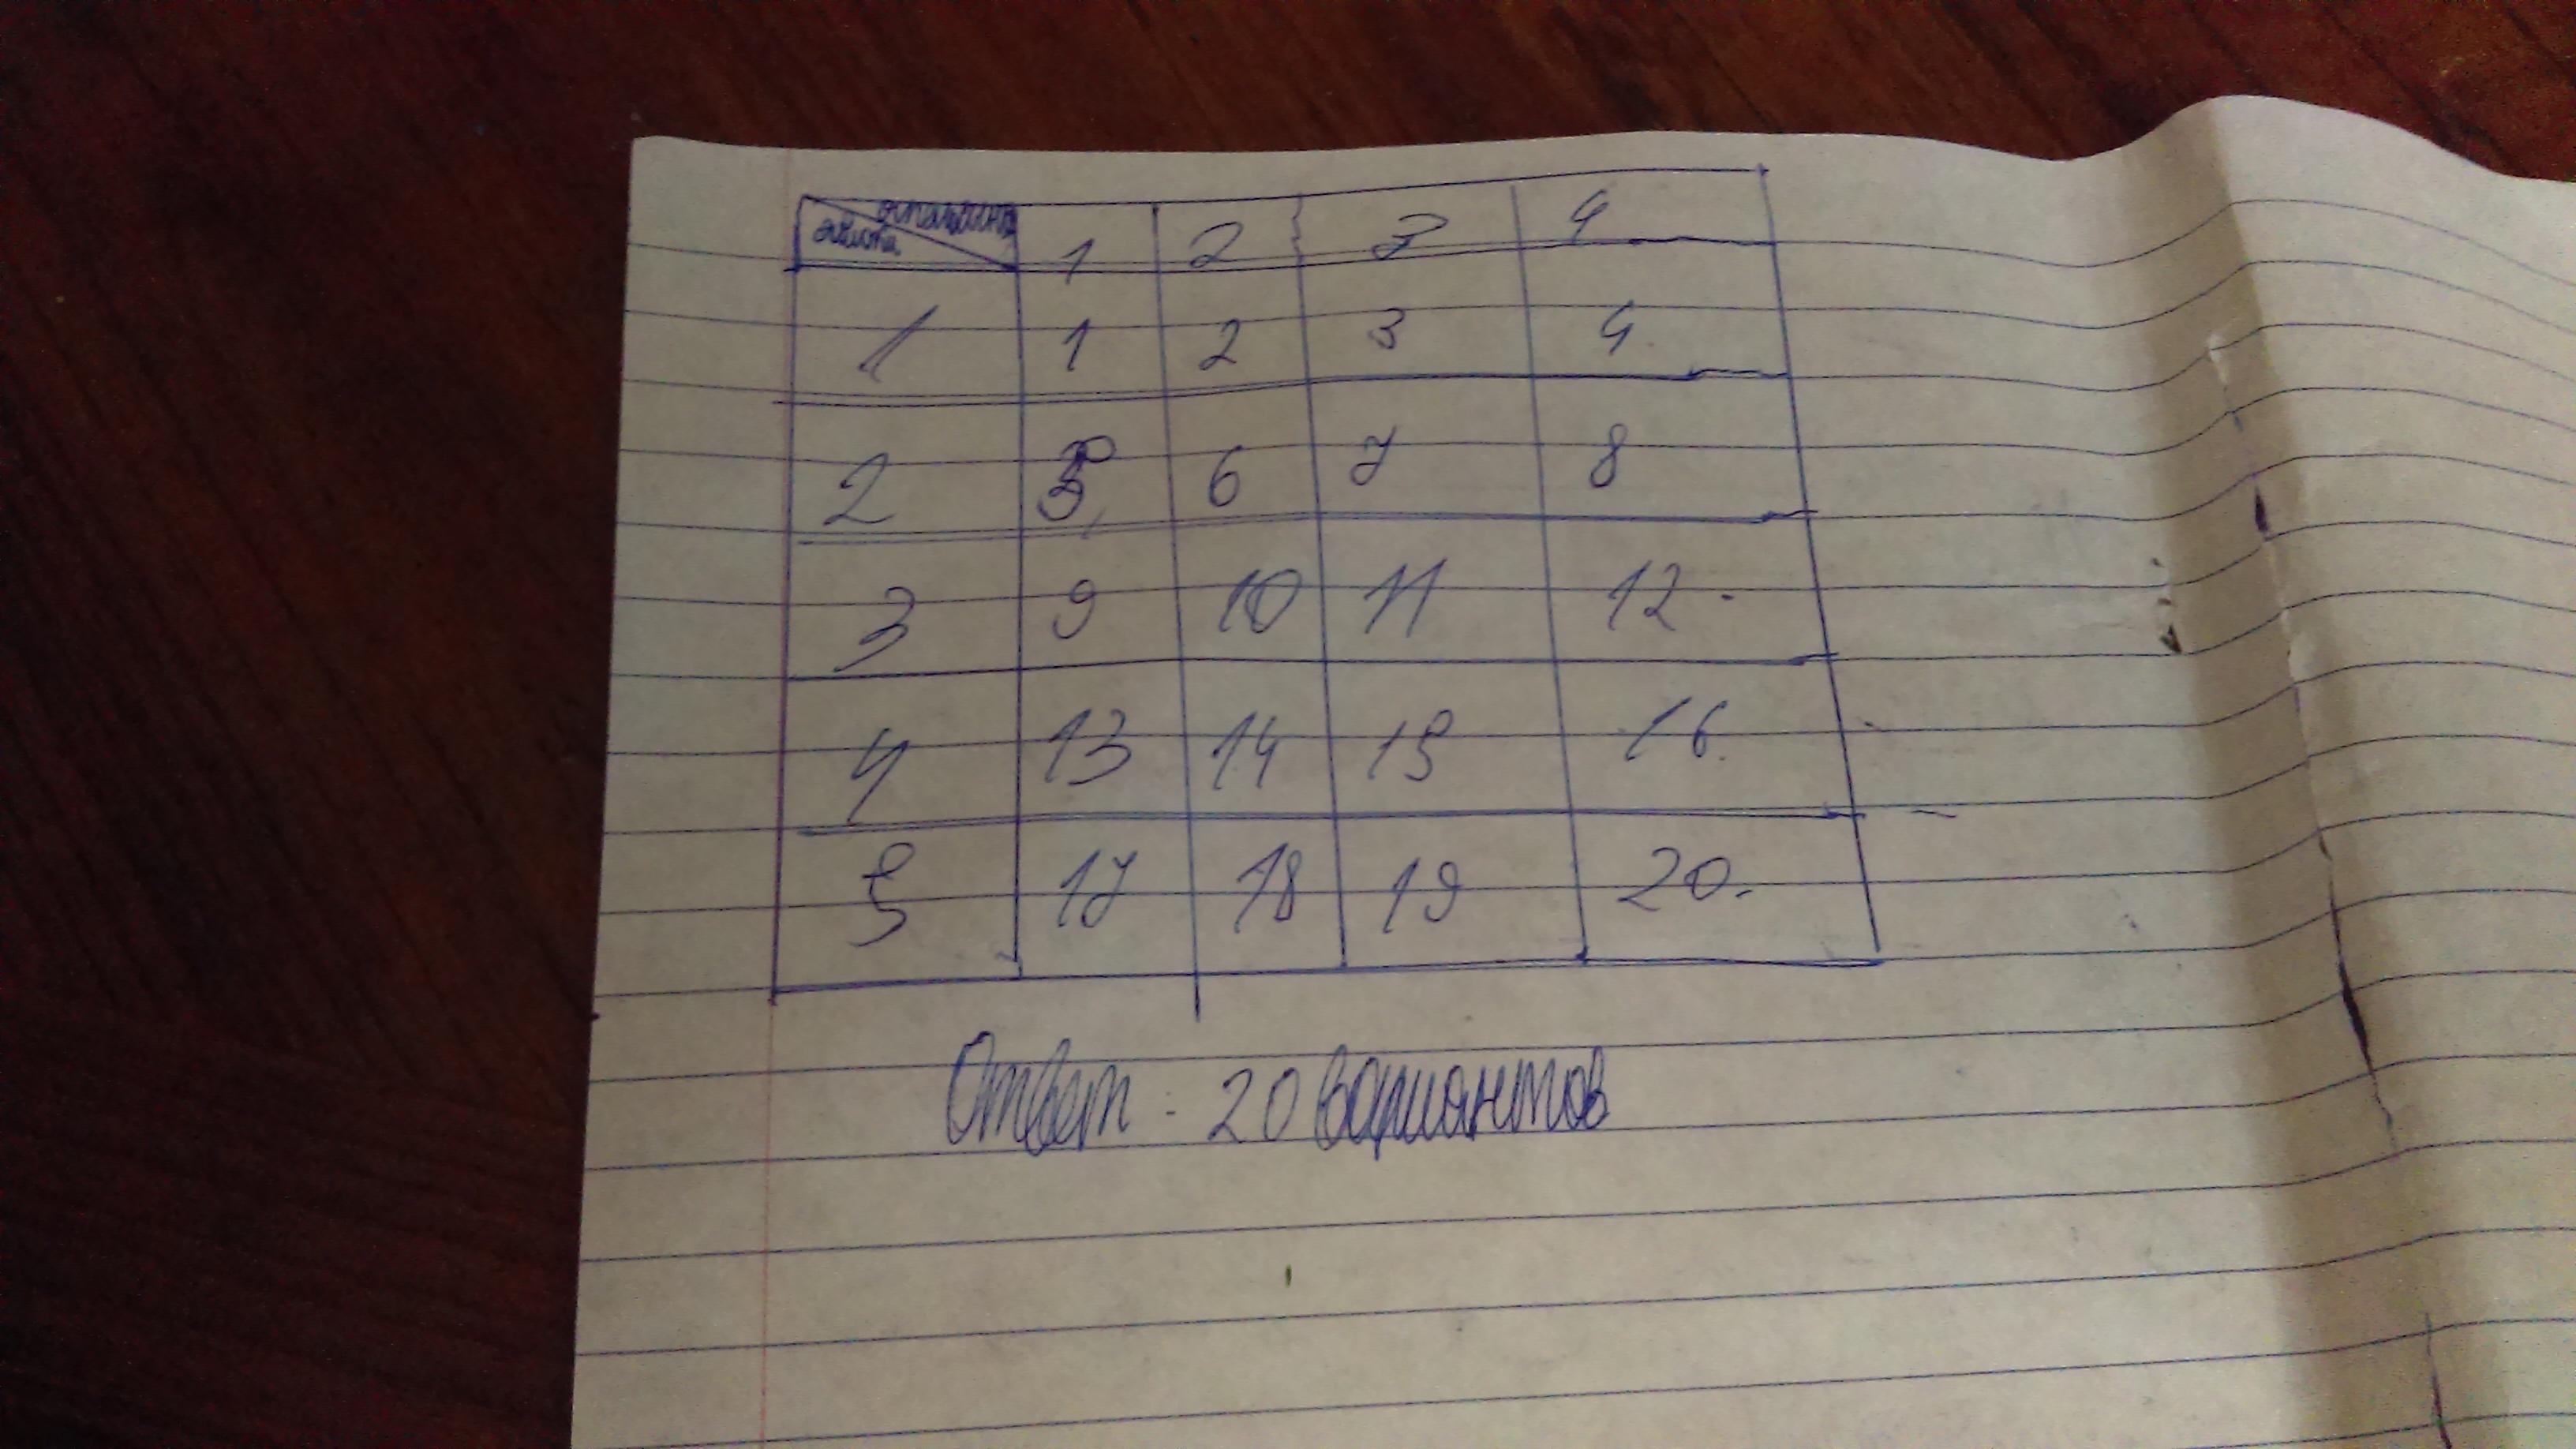 1 2 3 4
1 1 2 3 4
2 5, 6 7 8
3 9 10 11 12.
4 13 14 15 16.
5 17 18 19 20.
Ответ: 20 вариантов